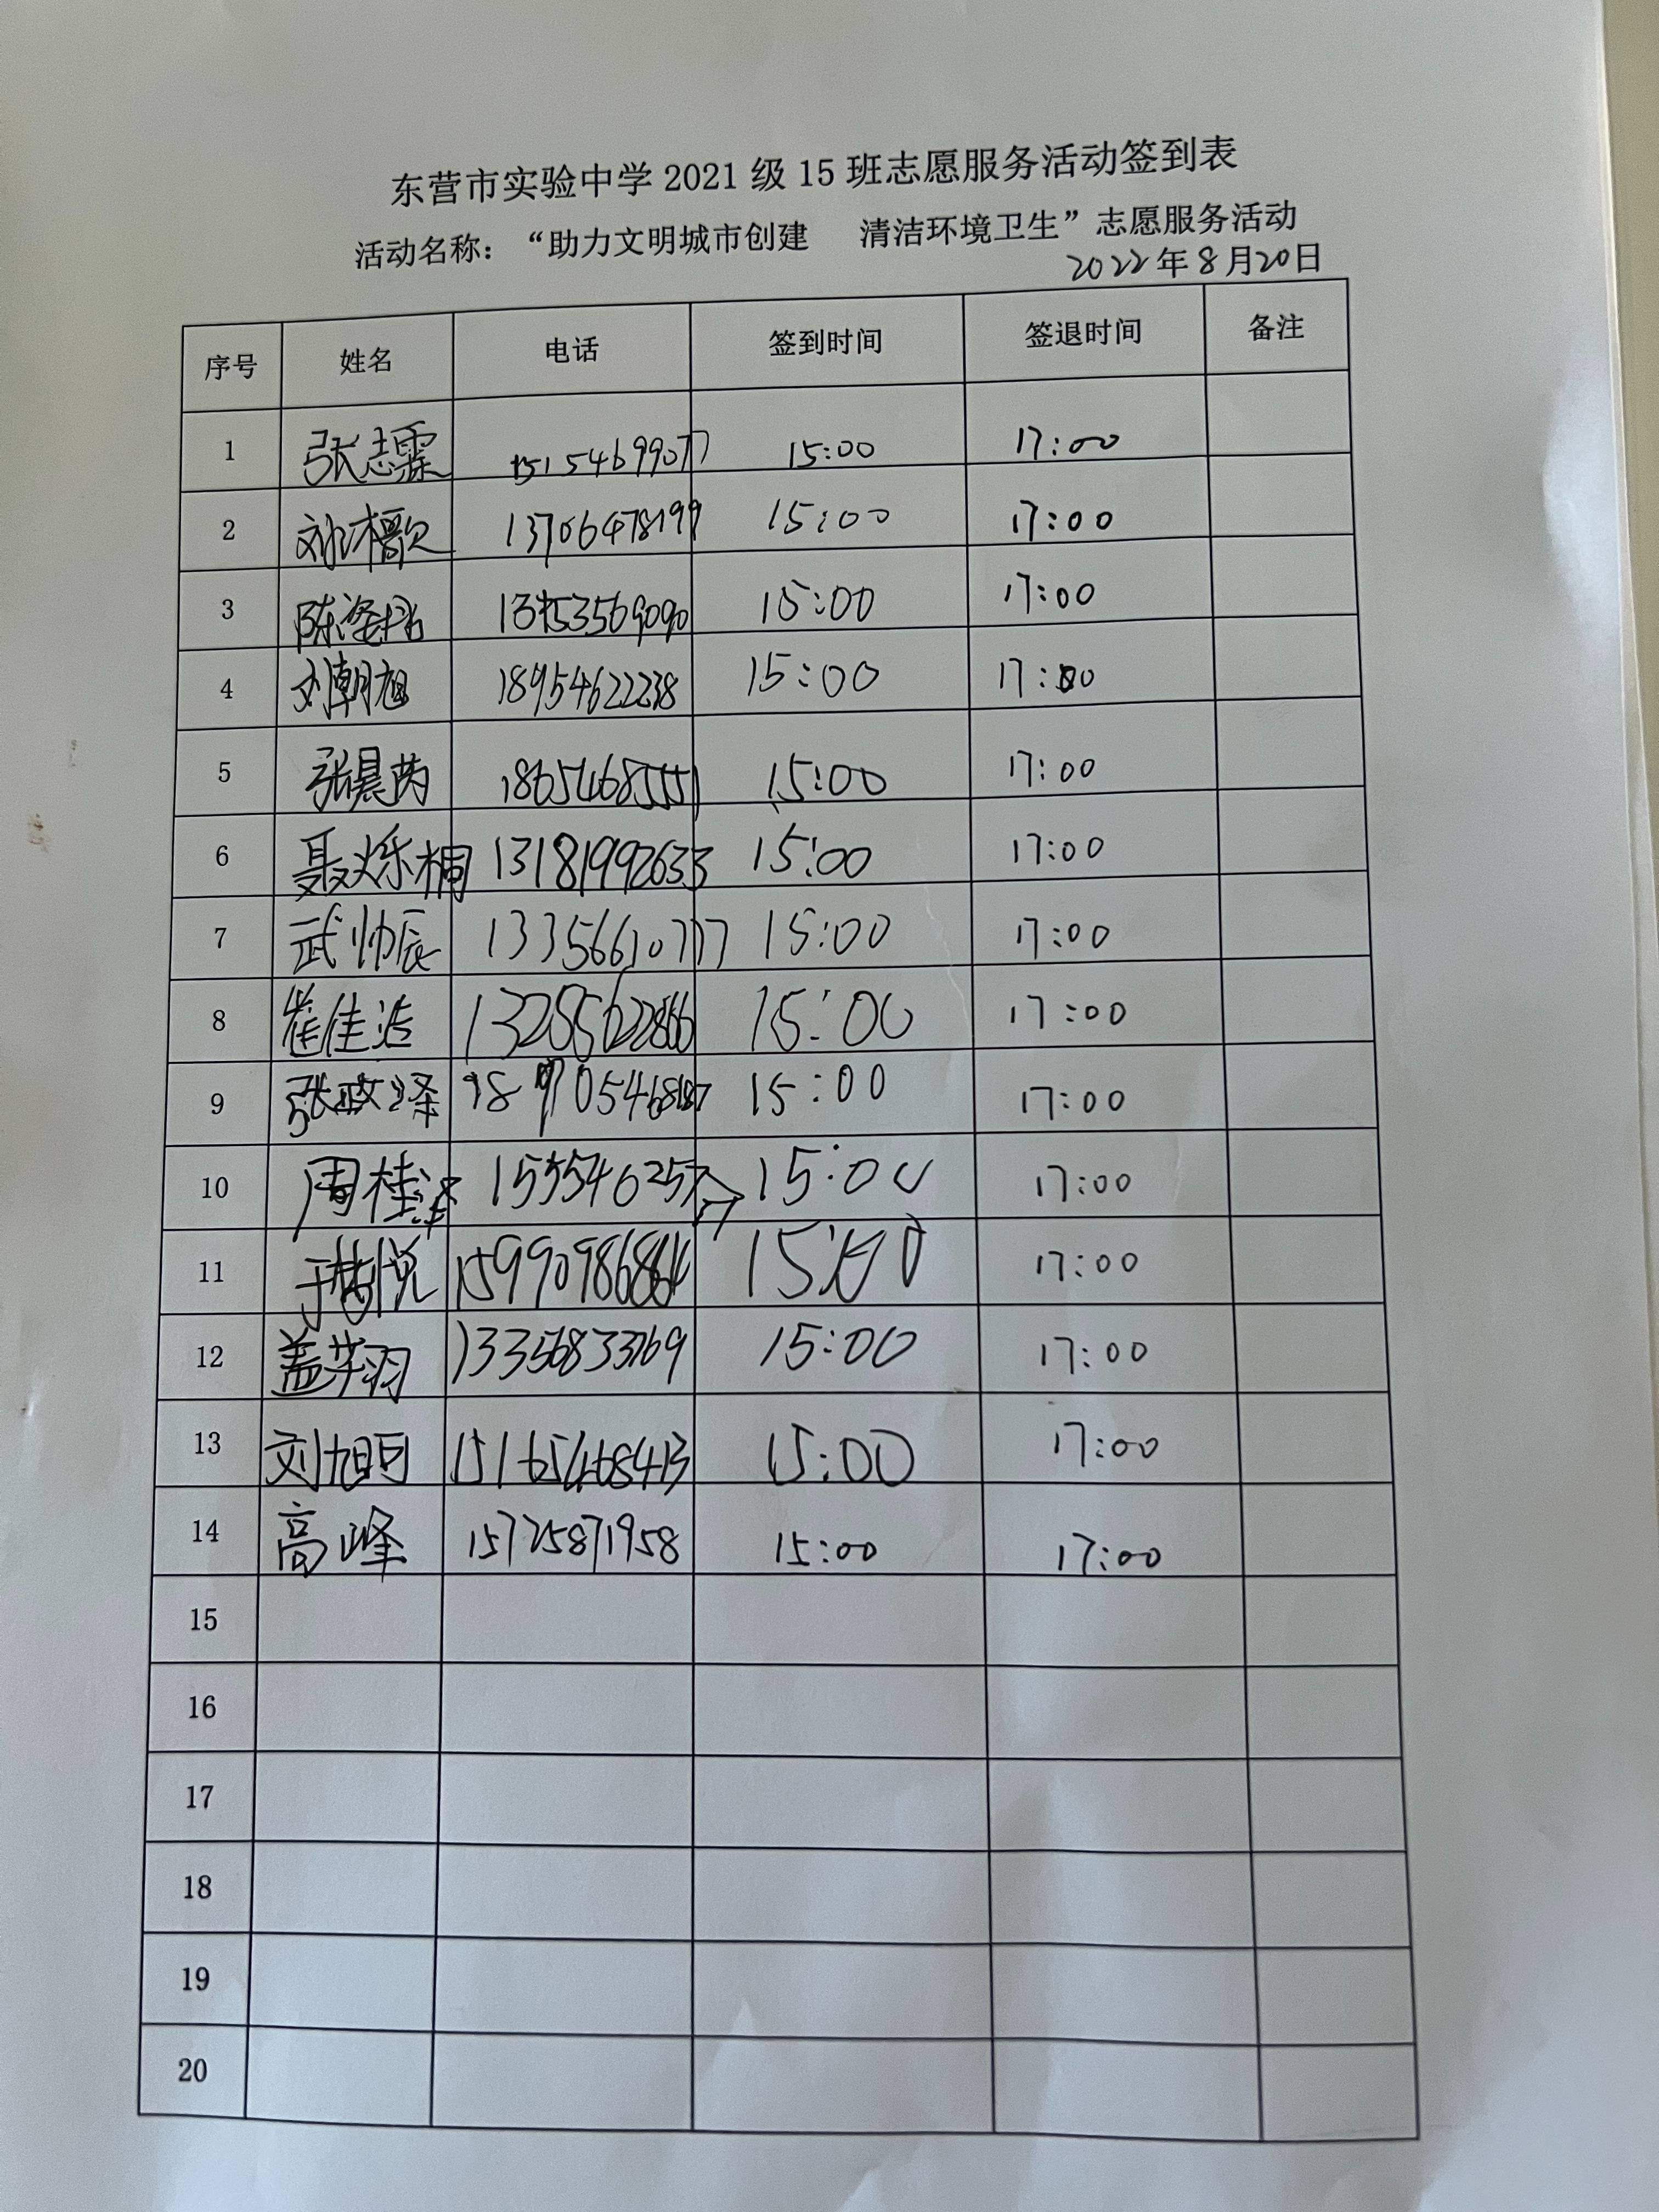 东营市实验中学 2021 级 15 班志愿服务活动签到表
活动名称：“助力文明城市创建 清洁环境卫生”志愿服务活动
2022年8月20日
序号 姓名 电话 签到时间 签退时间 备注
1 张志霖 15154699077 15:00 17:00
2 13706478199 15:00 17:00
3 15:00 17:00
4 刘朝旭 18954622238 15:00 17:00
5 15:00 17:00
6 聂烁桐 13181992633 15:00 17:00
7 武帅辰 13356610777 15:00 17:00
8 崔佳浩 13285622866 15:00 17:00
9 张政泽 15:00 17:00
10 15:00 17:00
11 15990986864 15:00 17:00
12 盖芊羽 13356833769 15:00 17:00
13 刘旭可 15165468413 15:00 17:00
14 高峰 15725871958 15:00 17:00
15
16
17
18
19
20